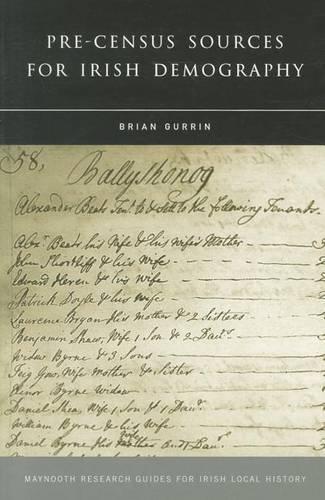 PRE-CENSUS SOURCES
FOR IRISH DEMOGRAPHY
BRIAN GURRIN
58,
Ballyshonog
Alexander Beats Tent. to & Sett to the following Tenants.
Alexr. Beats his Wife & his Wife's Mother
John Shortliff & his Wife
Edward Heren & his Wife
Patrick Doyle & his Wife
Laurence Bryan His Mother & 2 Sisters
Benjamin Shaw, Wife 1 Son & 2 Daurs.
Widow Byrne & 3 Sons
Teig Wife Mother & Sister
Byrne Widow
Daniel Shea, Wife 1 Son & 1 Daur.
William Byrne & his Wife
Daniel Byrne His Wife Mother and 1 Daur.
MAYNOOTH RESEARCH GUIDES FOR IRISH LOCAL HISTORY